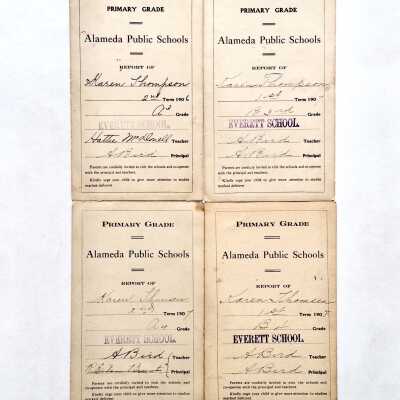 PRIMARY GRADE
Alameda Public Schools
REPORT OF
Karen Thompson
2nd Term 1906
A3 Grade
EVERETT SCHOOL.
Hattie Teacher
A Bird Principal
Parents are cordially invited to visit the schools and co-operate
with the principal and teachers.
Kindly urge your child to give more attention to studies
marked deficient
PRIMARY GRADE
Alameda Public Schools
REPORT OF
Karen Thompson
1st Term 190
B 3rd Grade
EVERETT SCHOOL.
A Bird Teacher
A Bird Principal
Parents are cordially invited to visit the schools and co-operate
with the principal and teachers.
Kindly urge your child to give more attention to studies
marked deficient
PRIMARY GRADE
Alameda Public Schools
REPORT OF
Karen
2nd Term 1907
A4 Grade
EVERETT SCHOOL.
A Bird Teacher
Principal
Parents are cordially invited to visit the schools and co-operate
with the principal and teachers.
Kindly urge your child to give more attention to studies
PRIMARY GRADE
Alameda Public Schools
REPORT OF
Karen Thomsen
1st Term 1907
B 4 Grade
EVERETT SCHOOL.
A Bird Teacher
A Bird Principal
Parents are cordially invited to visit the schools and co-operate
with the principal and teachers.
Kindly urge your child to give more attention to studies